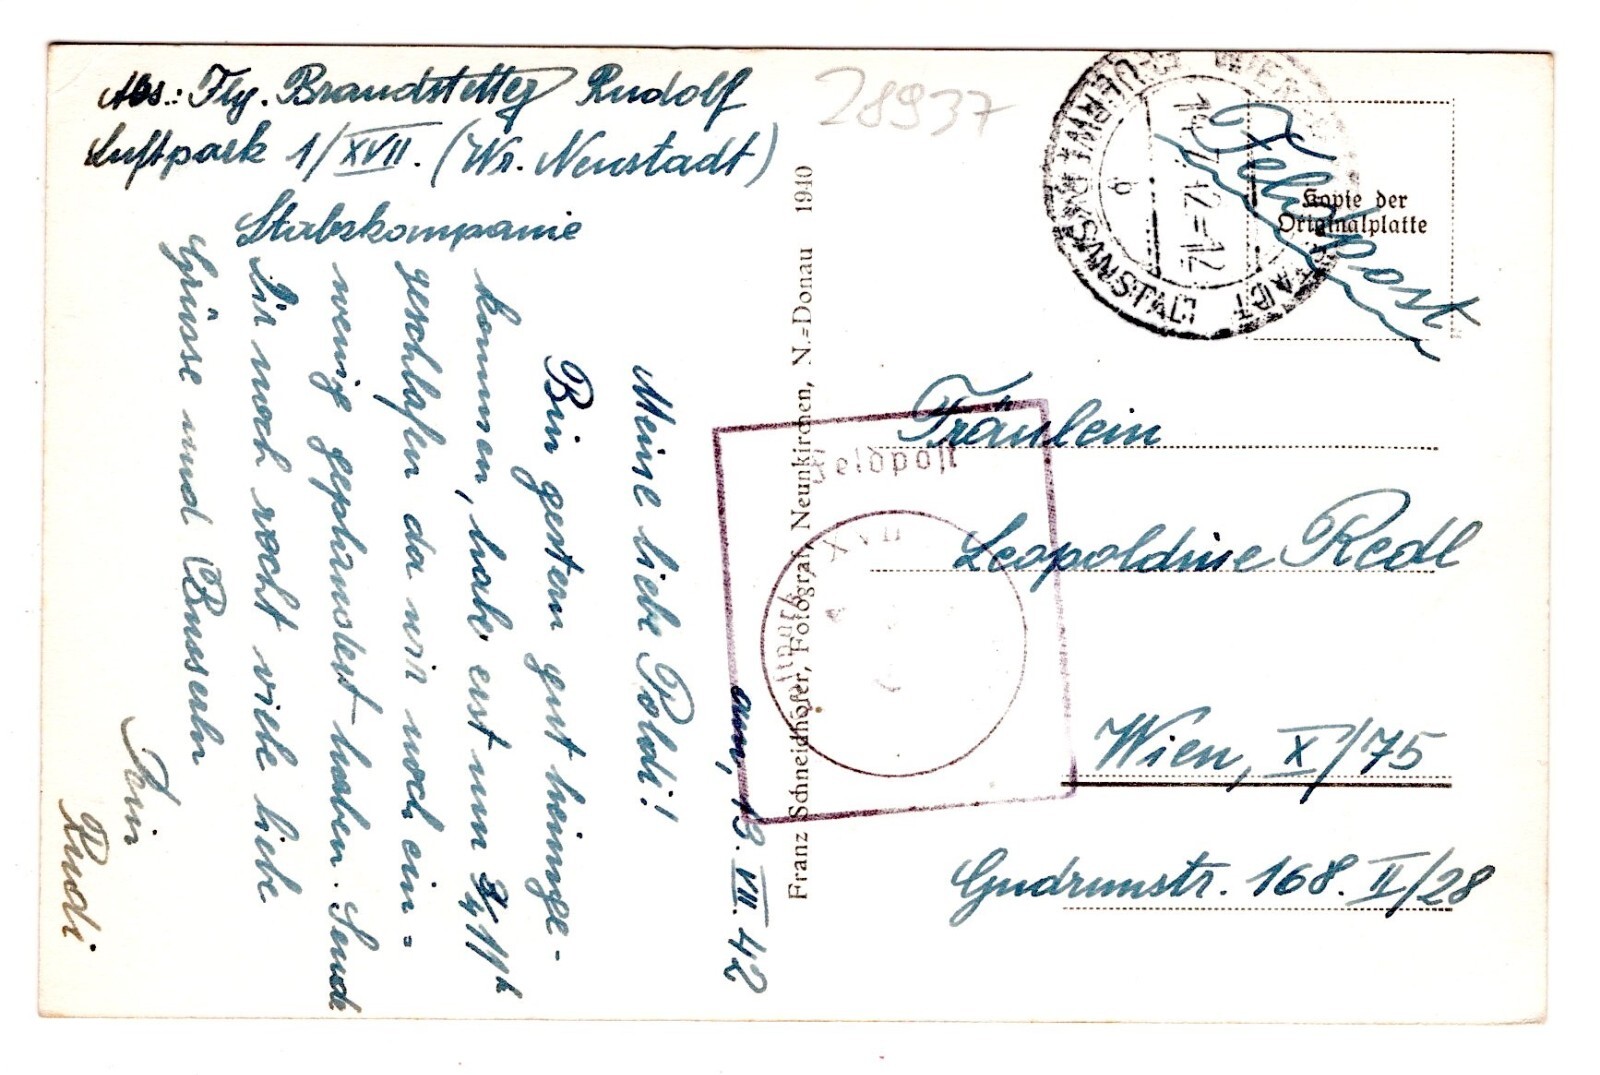 Abs.: Flg. Brandstetter Rudolf
Luftpark 1/XVII. (Wr. Neustadt)
Stabskompanie
am, 13. VII. 42
Meine liebe Poldi!
Bin gestern gut heimge-
kommen, habe erst um 3/4 11h
geschlafen da wir noch ein
wenig geplaudert haben. Sende
Dir noch recht viele liebe
Grüsse und Busserln
Dein
Rudi
Franz Schneidhofer, Fotograf, Neunkirchen, N.=Donau 1940
28937
Feldpost
Kopie der
Originalplatte
WIENER NEUSTADT
12-12
b
Feldpost
XVII
Fräulein
Leopoldine Redl
Wien, X/75
Gudrunstr. 168. II/28